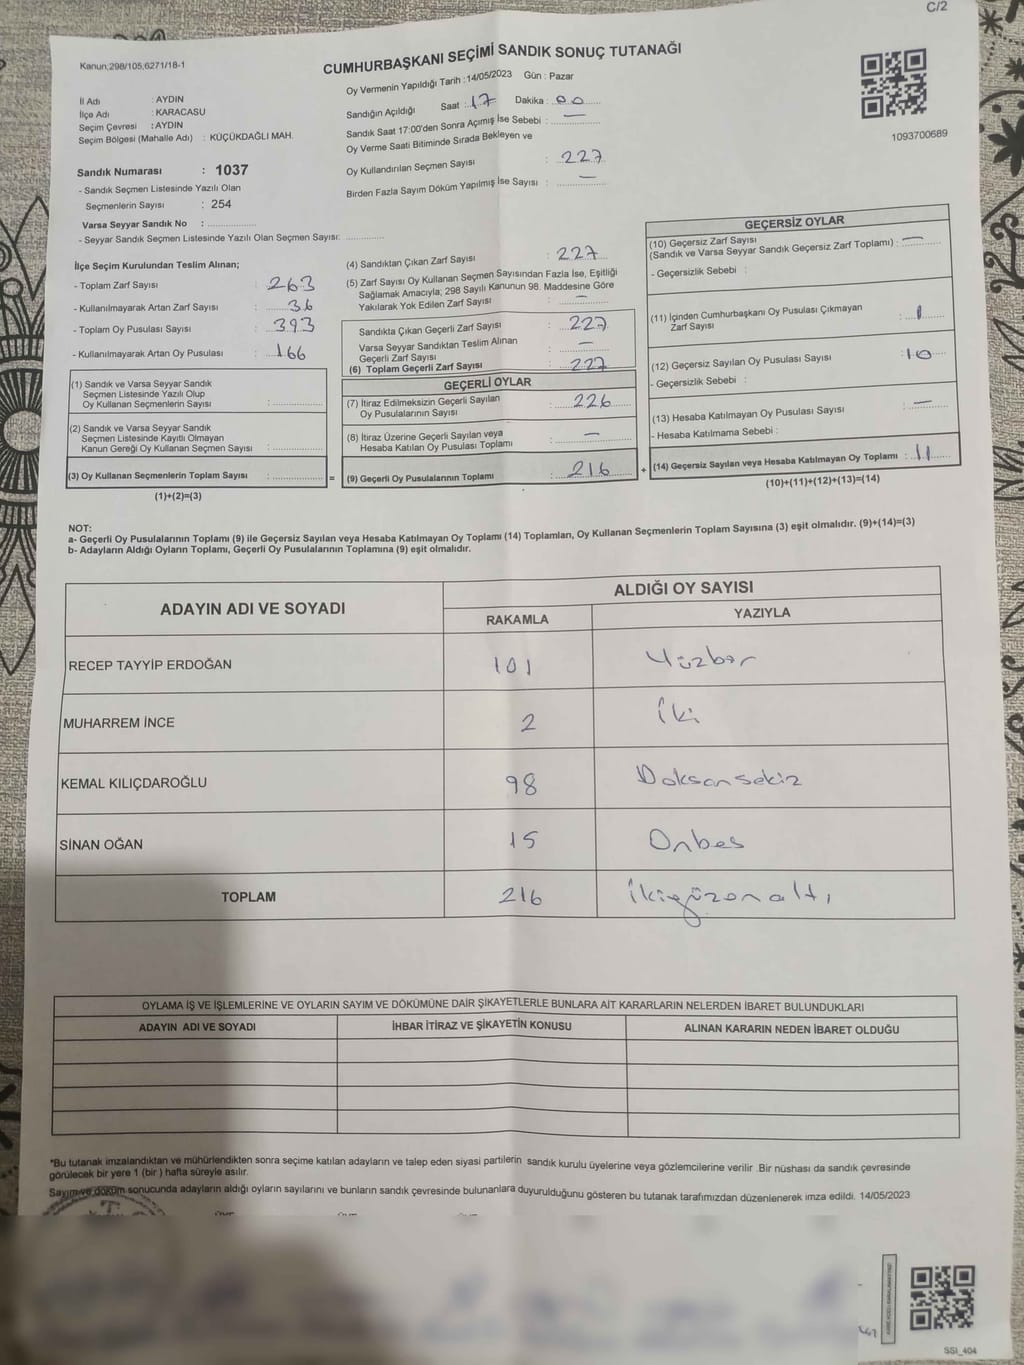 C/2
Kanun;298/105,6271/18-1
CUMHURBAŞKANI SEÇİMİ SANDIK SONUÇ TUTANAĞI
Oy Vermenin Yapıldığı Tarih :14/05/2023 Gün : Pazar
İl Adı : AYDIN
İlçe Adı : KARACASU
Seçim Çevresi : AYDIN
Seçim Bölgesi (Mahalle Adı) : KÜÇÜKDAĞLI MAH.
Sandığın Açıldığı Saat : 17 Dakika : 00
Sandık Saat 17:00'den Sonra Açımış İse Sebebi : —
Oy Verme Saati Bitiminde Sırada Bekleyen ve
Oy Kullandırılan Seçmen Sayısı : 227
Birden Fazla Sayım Döküm Yapılmış İse Sayısı : —
1093700689
Sandık Numarası : 1037
- Sandık Seçmen Listesinde Yazılı Olan
Seçmenlerin Sayısı : 254
Varsa Seyyar Sandık No :
- Seyyar Sandık Seçmen Listesinde Yazılı Olan Seçmen Sayısı:
İlçe Seçim Kurulundan Teslim Alınan;
- Toplam Zarf Sayısı : 263
- Kullanılmayarak Artan Zarf Sayısı : 36
- Toplam Oy Pusulası Sayısı : 393
- Kullanılmayarak Artan Oy Pusulası : 166
(1) Sandık ve Varsa Seyyar Sandık
Seçmen Listesinde Yazılı Olup
Oy Kullanan Seçmenlerin Sayısı :
(2) Sandık ve Varsa Seyyar Sandık
Seçmen Listesinde Kayıtlı Olmayan
Kanun Gereği Oy Kullanan Seçmen Sayısı :
(3) Oy Kullanan Seçmenlerin Toplam Sayısı : =
(1)+(2)=(3)
(4) Sandıktan Çıkan Zarf Sayısı : 227
(5) Zarf Sayısı Oy Kullanan Seçmen Sayısından Fazla İse, Eşitliği
Sağlamak Amacıyla; 298 Sayılı Kanunun 98. Maddesine Göre
Yakılarak Yok Edilen Zarf Sayısı : —
Sandıkta Çıkan Geçerli Zarf Sayısı : 227
Varsa Seyyar Sandıktan Teslim Alınan
Geçerli Zarf Sayısı : —
(6) Toplam Geçerli Zarf Sayısı : 227
GEÇERLİ OYLAR
(7) İtiraz Edilmeksizin Geçerli Sayılan
Oy Pusulalarının Sayısı : 226
(8) İtiraz Üzerine Geçerli Sayılan veya
Hesaba Katılan Oy Pusulası Toplamı : —
(9) Geçerli Oy Pusulalarının Toplamı : 216 +
GEÇERSİZ OYLAR
(10) Geçersiz Zarf Sayısı
(Sandık ve Varsa Seyyar Sandık Geçersiz Zarf Toplamı) : —
- Geçersizlik Sebebi :
(11) İçinden Cumhurbaşkanı Oy Pusulası Çıkmayan
Zarf Sayısı : 1
(12) Geçersiz Sayılan Oy Pusulası Sayısı : 10
- Geçersizlik Sebebi :
(13) Hesaba Katılmayan Oy Pusulası Sayısı : —
- Hesaba Katılmama Sebebi :
(14) Geçersiz Sayılan veya Hesaba Katılmayan Oy Toplamı : 11
(10)+(11)+(12)+(13)=(14)
NOT:
a- Geçerli Oy Pusulalarının Toplamı (9) ile Geçersiz Sayılan veya Hesaba Katılmayan Oy Toplamı (14) Toplamları, Oy Kullanan Seçmenlerin Toplam Sayısına (3) eşit olmalıdır. (9)+(14)=(3)
b- Adayların Aldığı Oyların Toplamı, Geçerli Oy Pusulalarının Toplamına (9) eşit olmalıdır.
ADAYIN ADI VE SOYADI ALDIĞI OY SAYISI
RAKAMLA YAZIYLA
RECEP TAYYİP ERDOĞAN 101 Yüzbir
MUHARREM İNCE 2 İki
KEMAL KILIÇDAROĞLU 98 Doksansekiz
SİNAN OĞAN 15 Onbes
TOPLAM 216 İkiyüzonaltı
OYLAMA İŞ VE İŞLEMLERİNE VE OYLARIN SAYIM VE DÖKÜMÜNE DAİR ŞİKAYETLERLE BUNLARA AİT KARARLARIN NELERDEN İBARET BULUNDUKLARI
ADAYIN ADI VE SOYADI İHBAR İTİRAZ VE ŞİKAYETİN KONUSU ALINAN KARARIN NEDEN İBARET OLDUĞU
*Bu tutanak imzalandıktan ve mühürlendikten sonra seçime katılan adayların ve talep eden siyasi partilerin sandık kurulu üyelerine veya gözlemcilerine verilir .Bir nüshası da sandık çevresinde
görülecek bir yere 1 (bir ) hafta süreyle asılır.
Sayım ve döküm sonucunda adayların aldığı oyların sayılarını ve bunların sandık çevresinde bulunanlara duyurulduğunu gösteren bu tutanak tarafımızdan düzenlenerek imza edildi. 14/05/2023
SSI_404